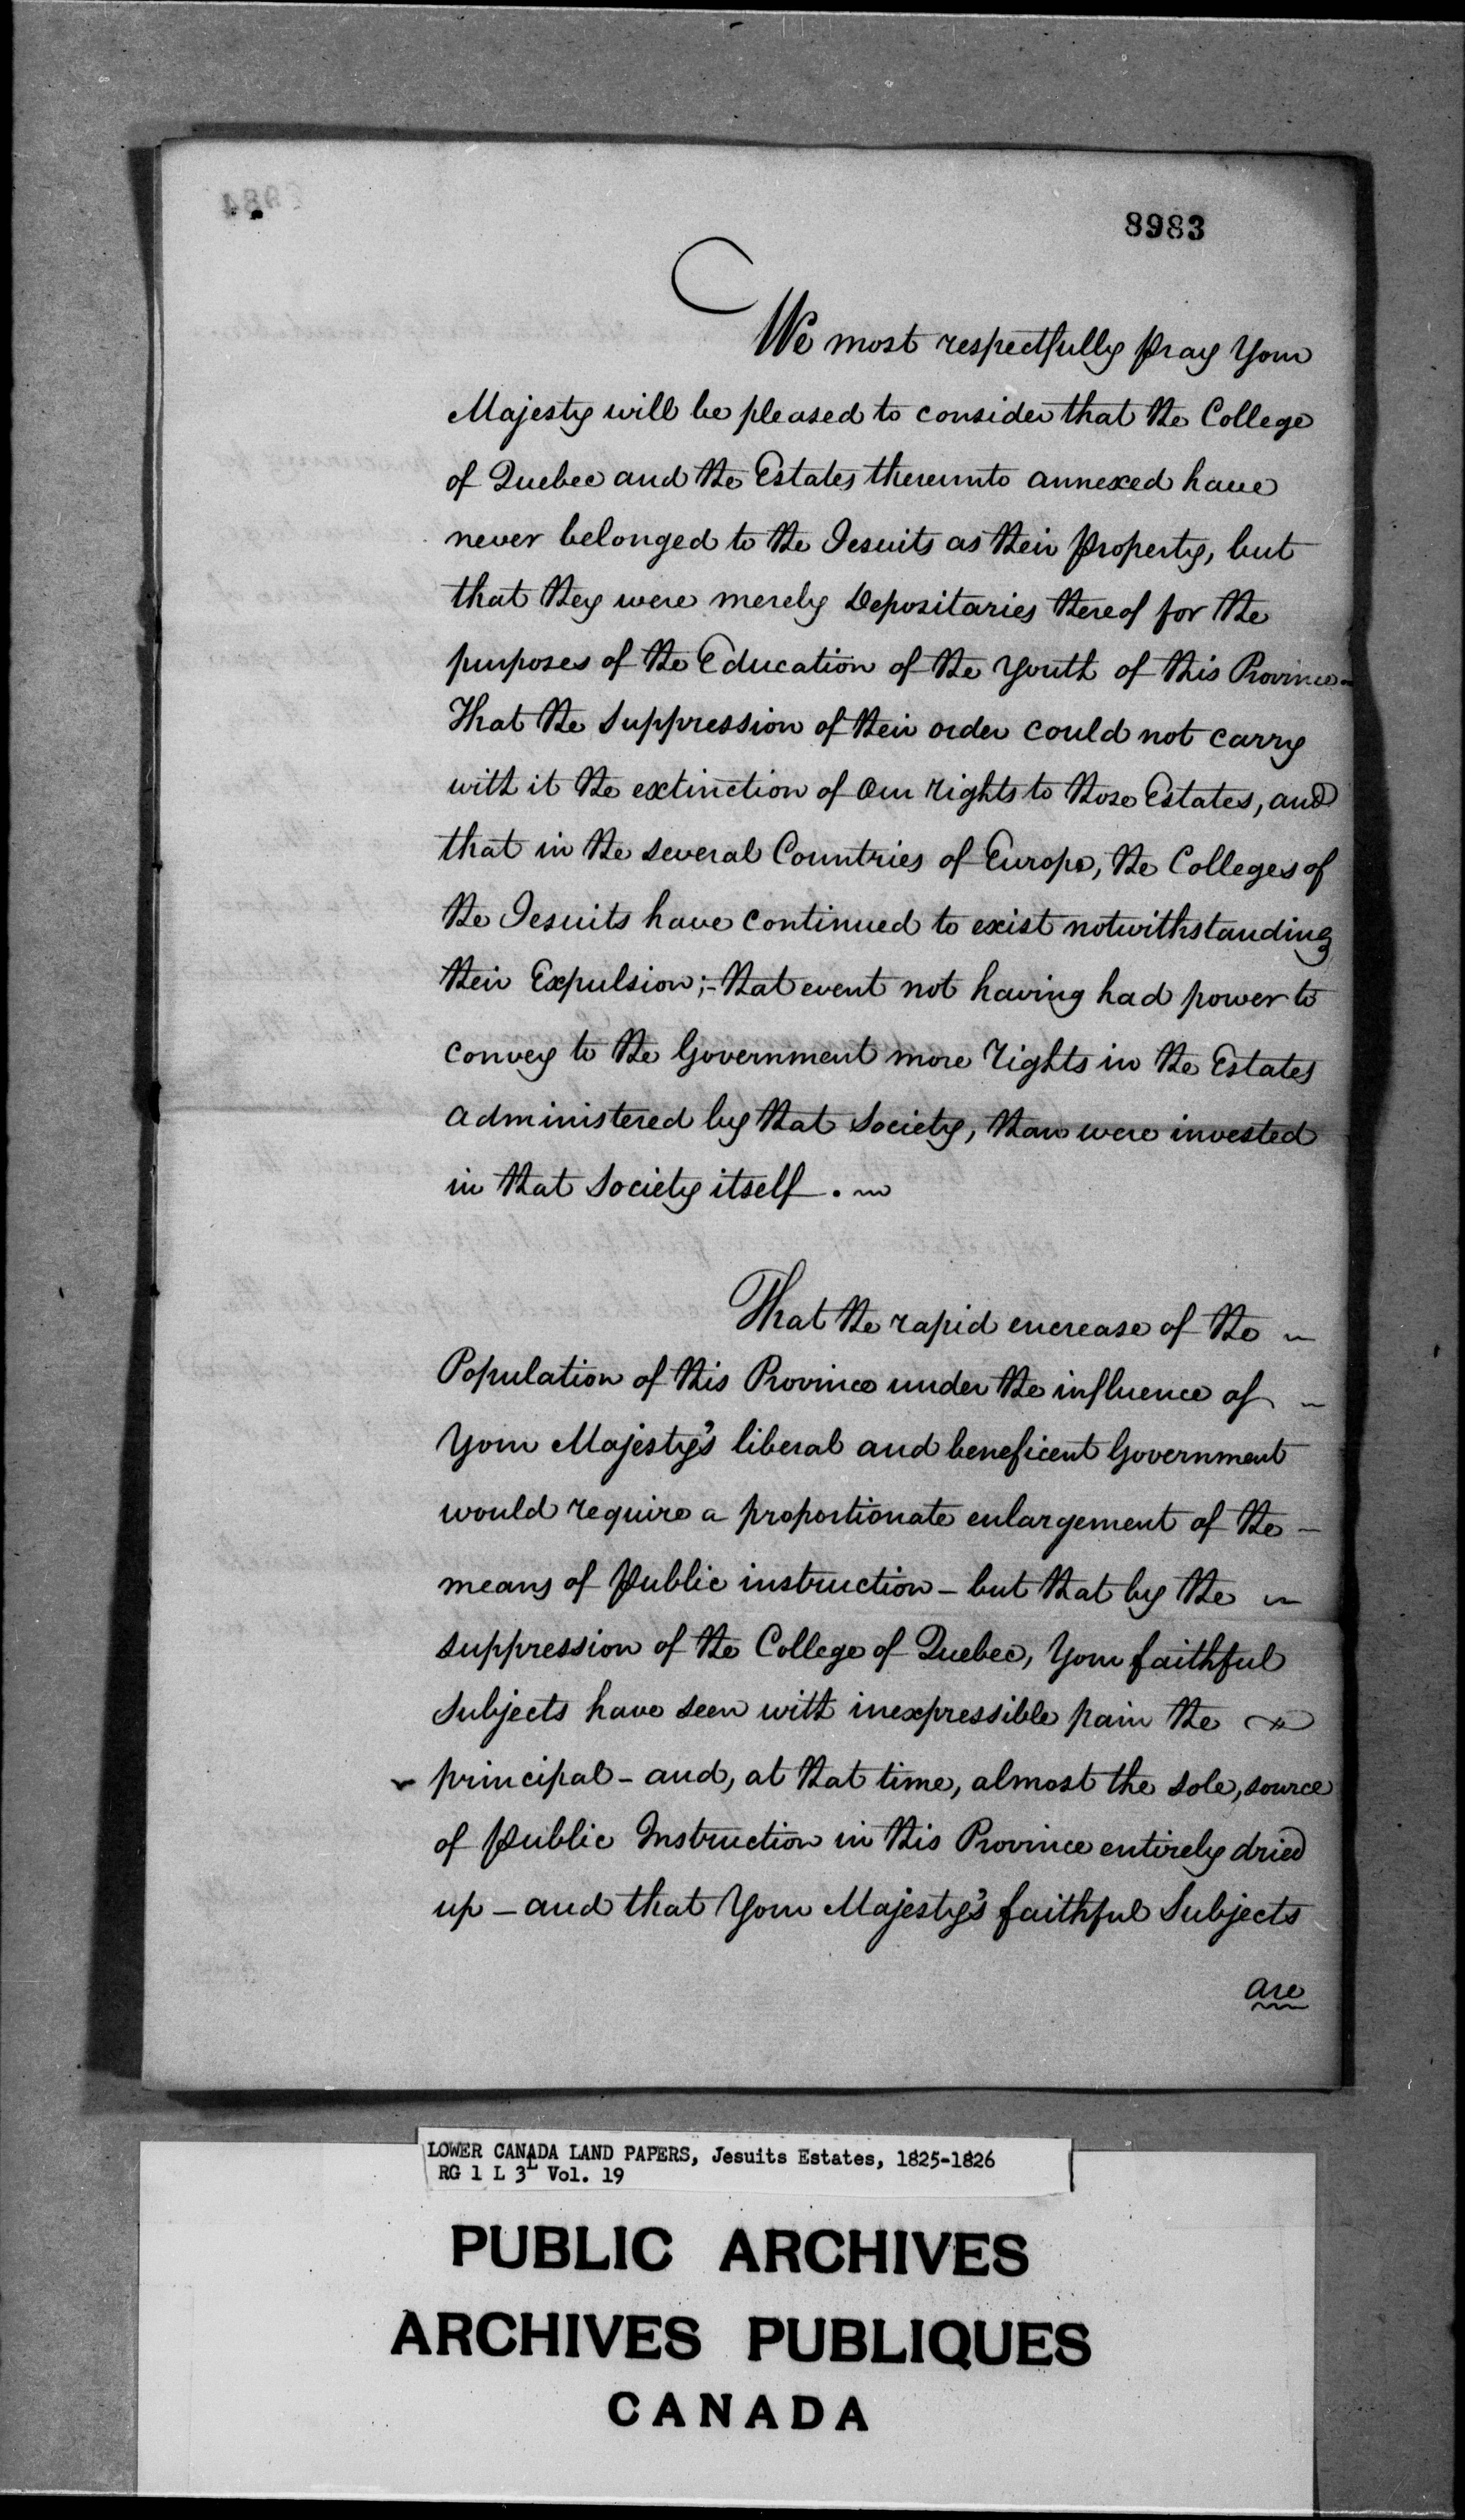 8983
We most respectfully pray Your
Majesty will be pleased to consider that the College
of Quebec and the Estates thereunto annexed have
never belonged to the Jesuits as their property, but
that they were merely Depositaries thereof for the
purposes of the Education of the Youth of this Province-
That the Suppression of their order could not carry
with it the extinction of Our rights to those Estates, and
that in the several Countries of Europe, the Colleges of
the Jesuits have continued to exist notwithstanding
their Expulsion;- that event not having had power to
convey to the Government more rights in the Estates
administered by that Society, than were invested
in that Society itself.
That the rapid encrease of the
Population of this Province under the influence of
Your Majesty's liberal and beneficent Government
would require a proportionate enlargement of the -
means of Public instruction - but that by the
suppression of the College of Quebec, Your faithful
Subjects have seen with inexpressible pain the
principal - and, at that time, almost the sole, source
of Public Instruction in this Province entirely dried
up - and that Your Majesty's faithful Subjects
are
LOWER CANADA LAND PAPERS, Jesuits Estates, 1825-1826
RG 1 L 3L Vol. 19
PUBLIC ARCHIVES
ARCHIVES PUBLIQUES
CANADA